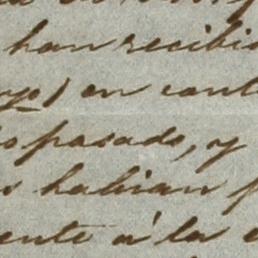 han recibi
yo) en cont
pasado, y
s habian
ente á la